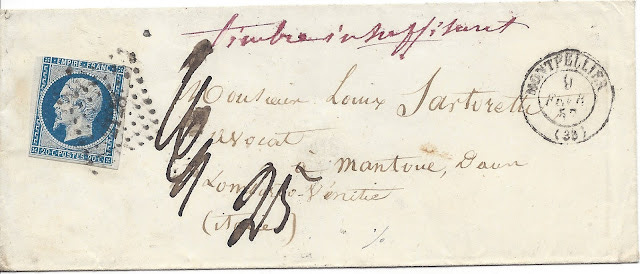 Timbre insuffisant
EMPIRE FRANC.
20 C. POSTES 20 C.
MONTPELLIER
9
FEVR
57
(33)
Monsieur Louis Sartoretti
avocat
à Mantoue, dans
Lombardo-Vénitie
(Italie)
25